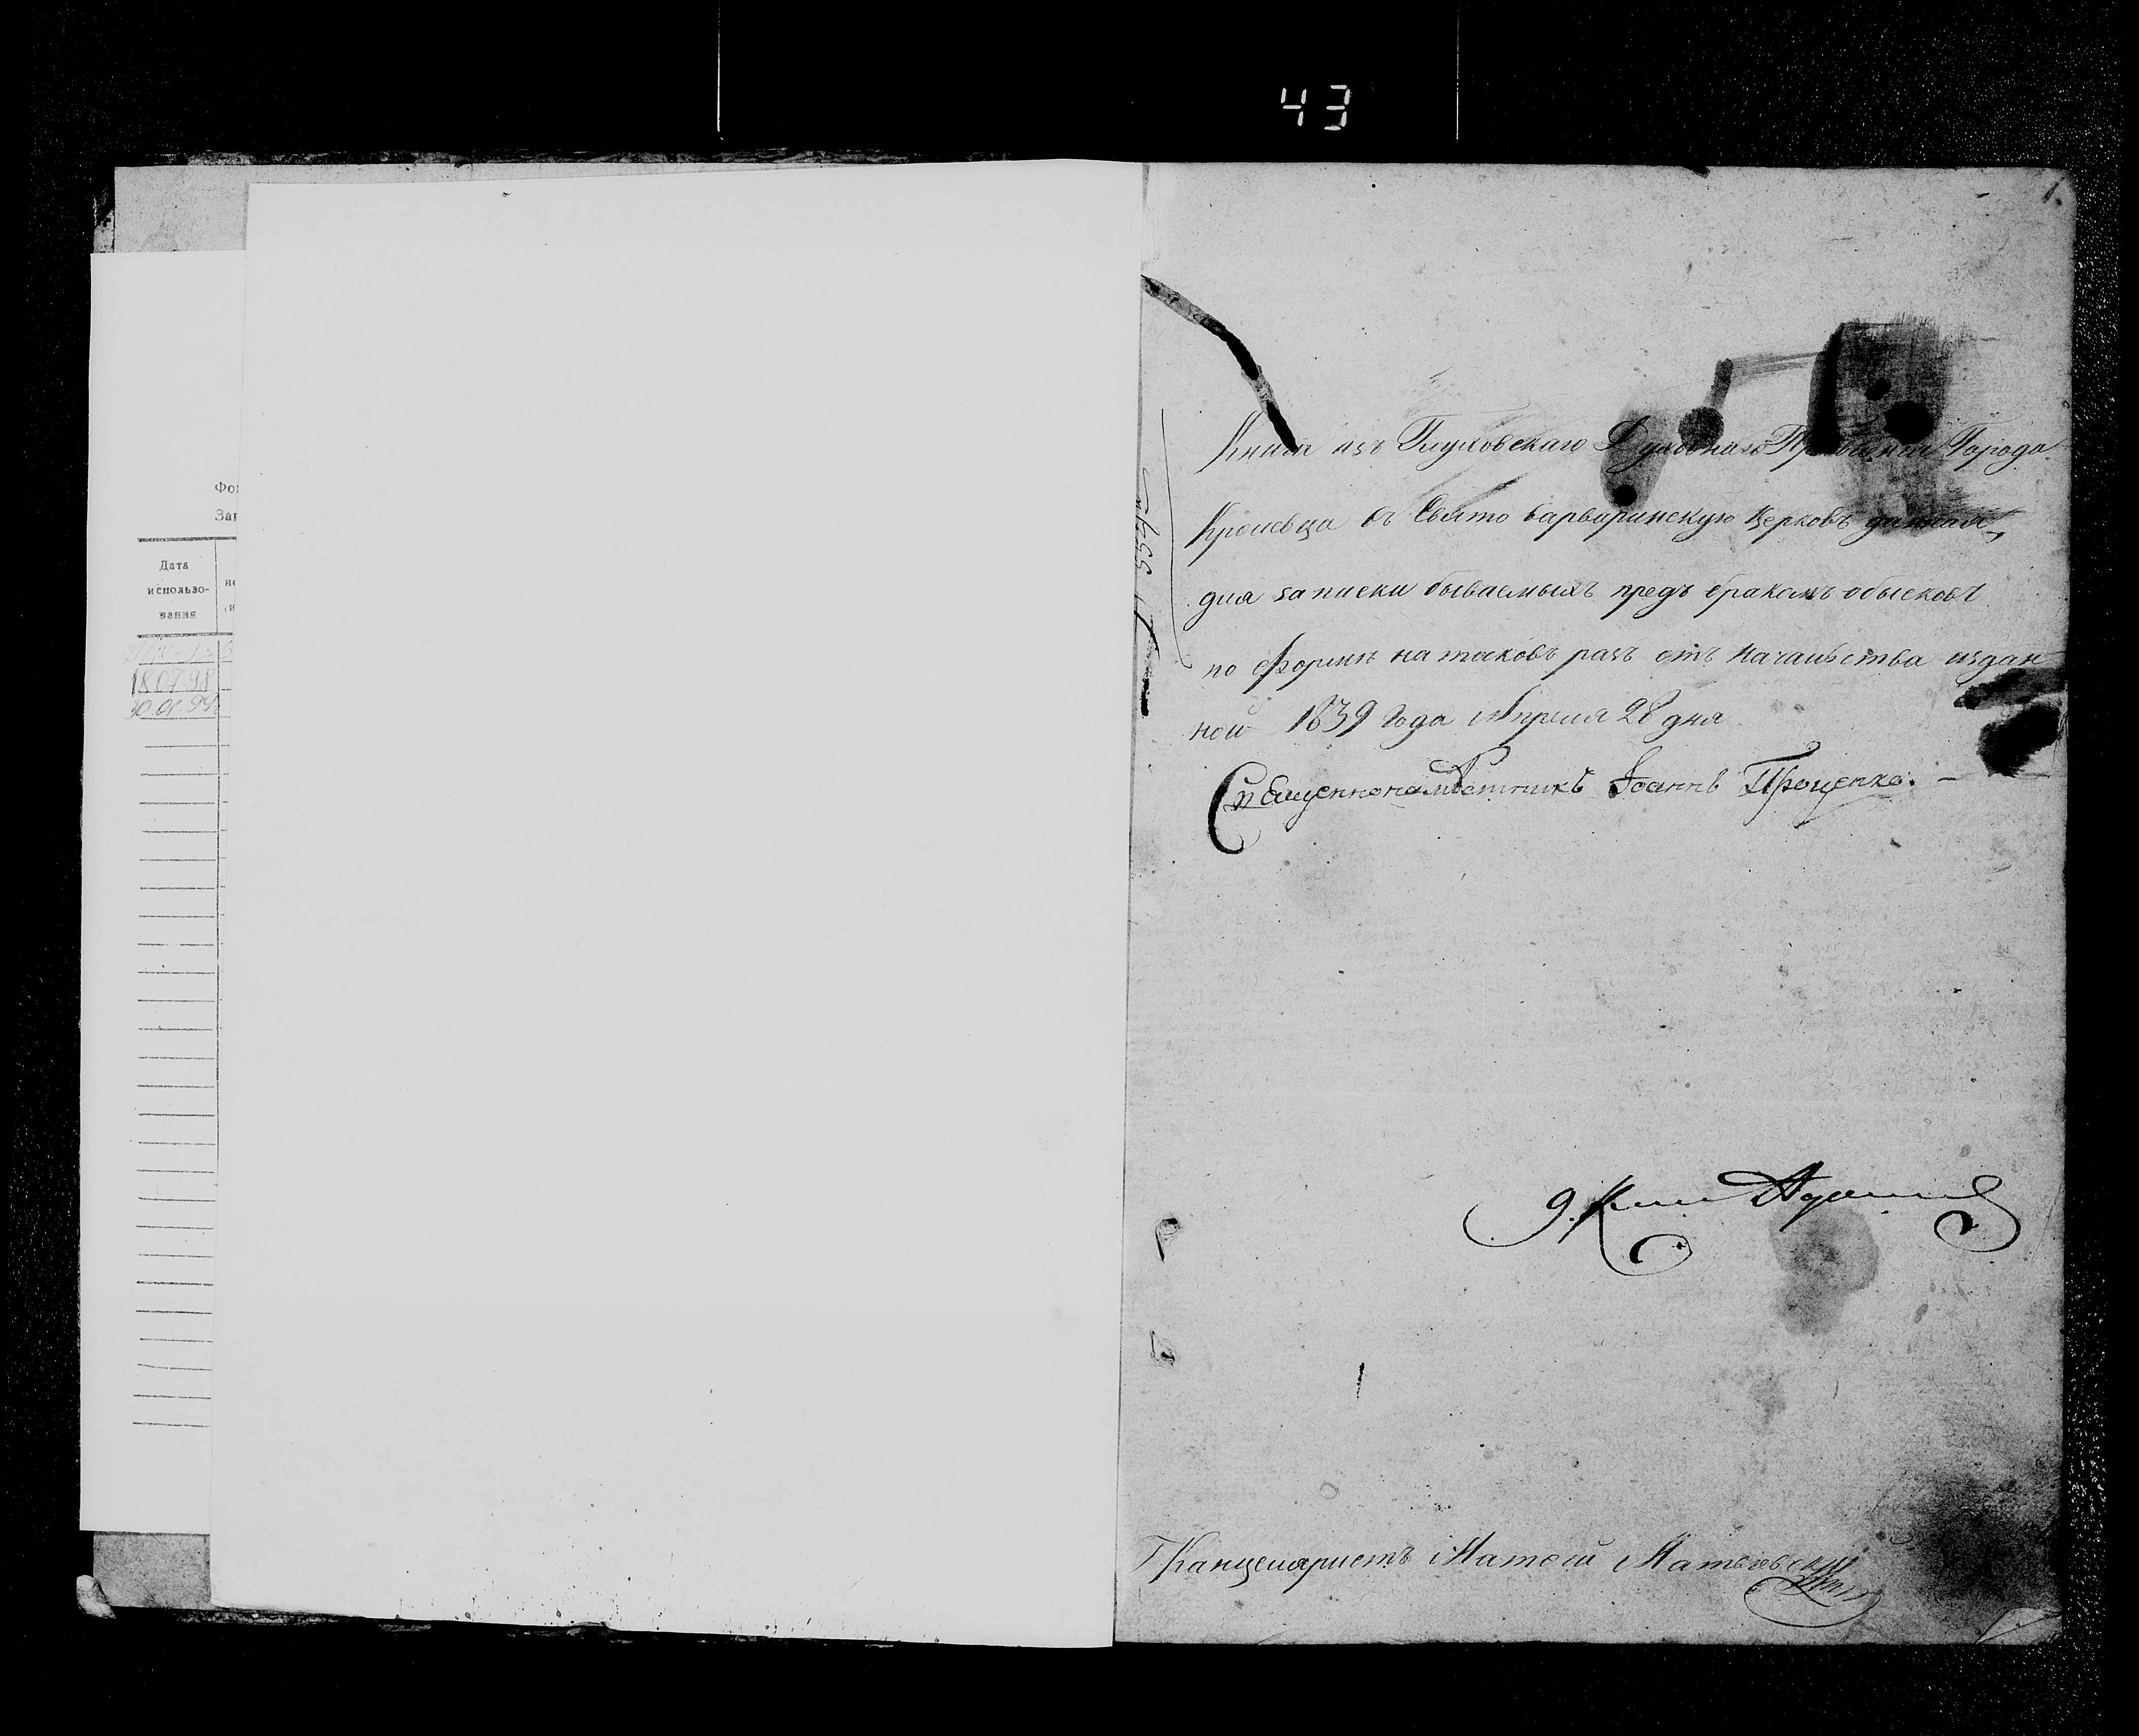 43
1.
Фо
Заг
Дата
использо-
вания
18.07.98
30.01.99
Книга изъ Глуховскаго Духовнаго Правленія Города
Кролевца въ Свято Варваринскую Церковь данная
для записки бываемыхъ предъ бракомъ обысковъ
по формѣ на таковъ разъ отъ Начальства издан
ной 1839 Года Апреля 28 дня
Священнонамѣстникъ Іоаннъ Проценко.
Канцеляристъ Матѳей Матвѣевскій